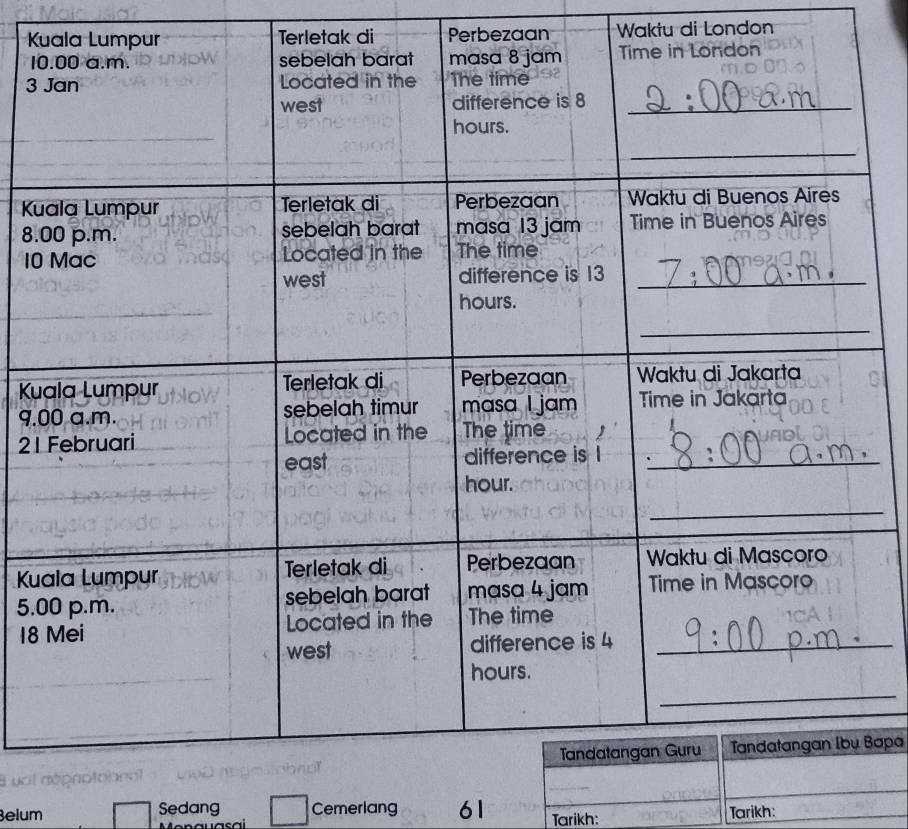 Kuala Lumpur
10.00 a.m.
3 Jan
Terletak di
sebelah barat
Located in the
west
Perbezaan
masa 8 jam
The time
difference is 8
hours.
Waktu di London
Time in London
2:00 a.m
Kuala Lumpur
8.00 p.m.
10 Mac
Terletak di
sebelah barat
Located in the
west
Perbezaan
masa 13 jam
The time
difference is 13
hours.
Waktu di Buenos Aires
Time in Buenos Aires
7:00 a.m.
Kuala Lumpur
9.00 a.m.
21 Februari
Terletak di
sebelah timur
Located in the
east
Perbezaan
masa 1 jam
The time
difference is 1
hour.
Waktu di Jakarta
Time in Jakarta
8:00 a.m.
Kuala Lumpur
5.00 p.m.
18 Mei
Terletak di
sebelah barat
Located in the
west
Perbezaan
masa 4 jam
The time
difference is 4
hours.
Waktu di Mascoro
Time in Mascoro
9:00 p.m.
Tandatangan Guru
Tandatangan Ibu Bapa
Belum
Sedang
Menguasai
Cemerlang
61
Tarikh:
Tarikh: